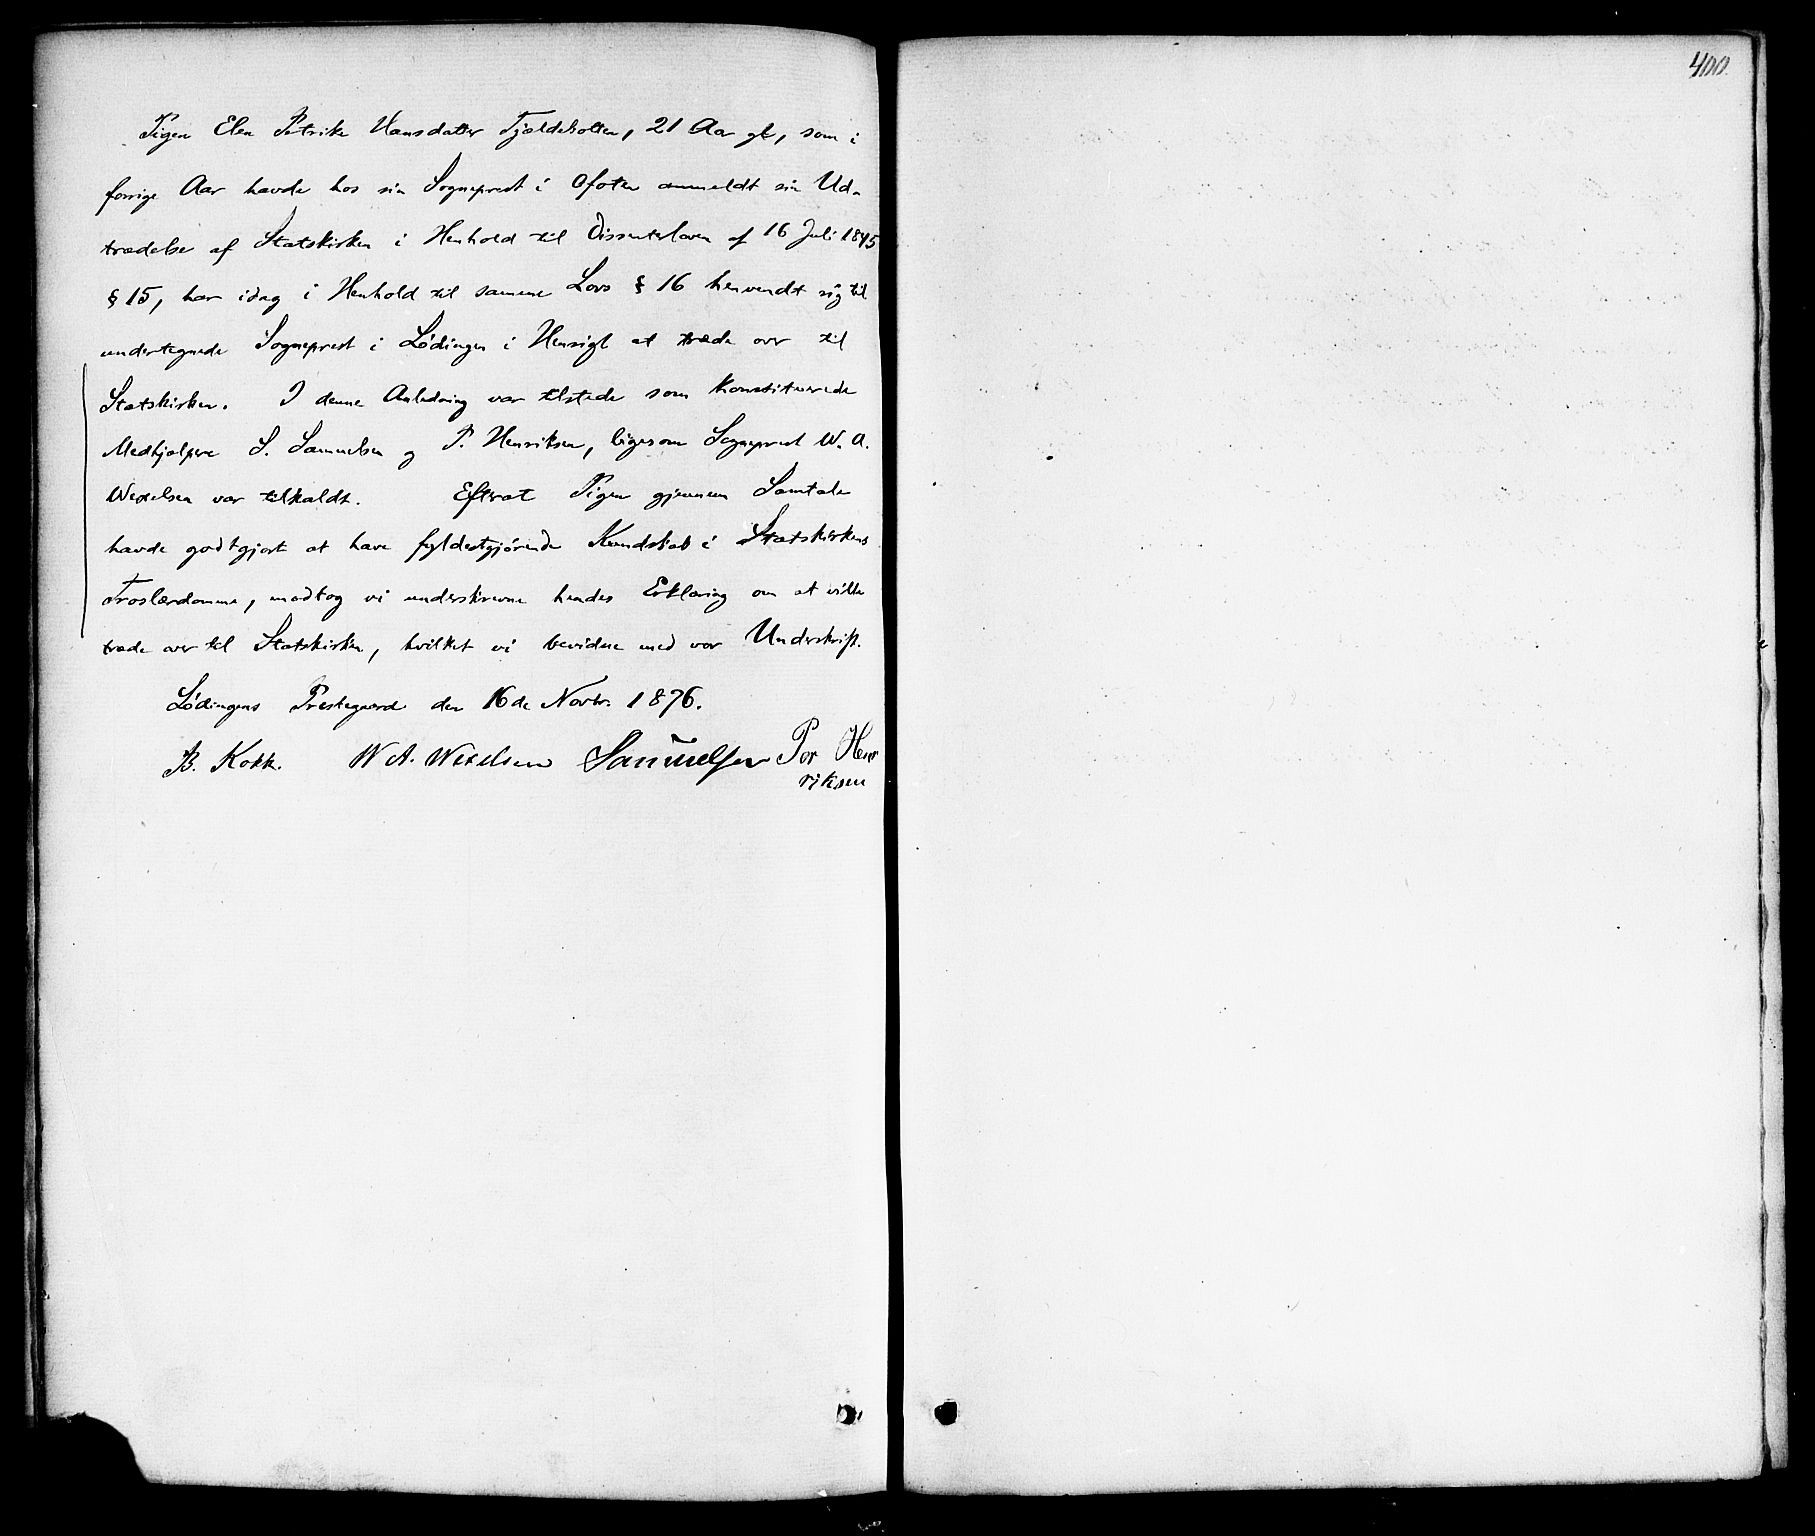 400.
Pigen Elen Petrikke Hansdatter Fjeldeholten, 21 Aar gl, som i
forrige Aar havde hos sin Sogneprest i Ofoten anmeldt sin Ud-
trædelse af Statskirken i Henhold til Dissenterloven af 16 Juli 1845
§ 15, har idag i Henhold til samme Lovs § 16 henvendt sig til
undertegnede Sogneprest i Lødingen i Hensigt at træde over til
Statskirken. I denne Anledning var tilstede som konstituerede
Medhjælpere S. Samuelsen og P. Henriksen, ligesom Sogneprest W. A.
Wexelsen var tilkaldt. Efterat Pigen gjennem Samtale
havde godtgjort at have fyldestgjørende Kundskab i Statskirkens
Troslærdomme, modtog vi underskrevne hendes Erklæring om at ville
træde over til Statskirken, hvilket vi bevidne med vor Underskrift.
Lødingens Prestegaard den 16de Novbr. 1876.
B. Kokk. W. A. Wexelsen Samuelsen Per Hen
riksen